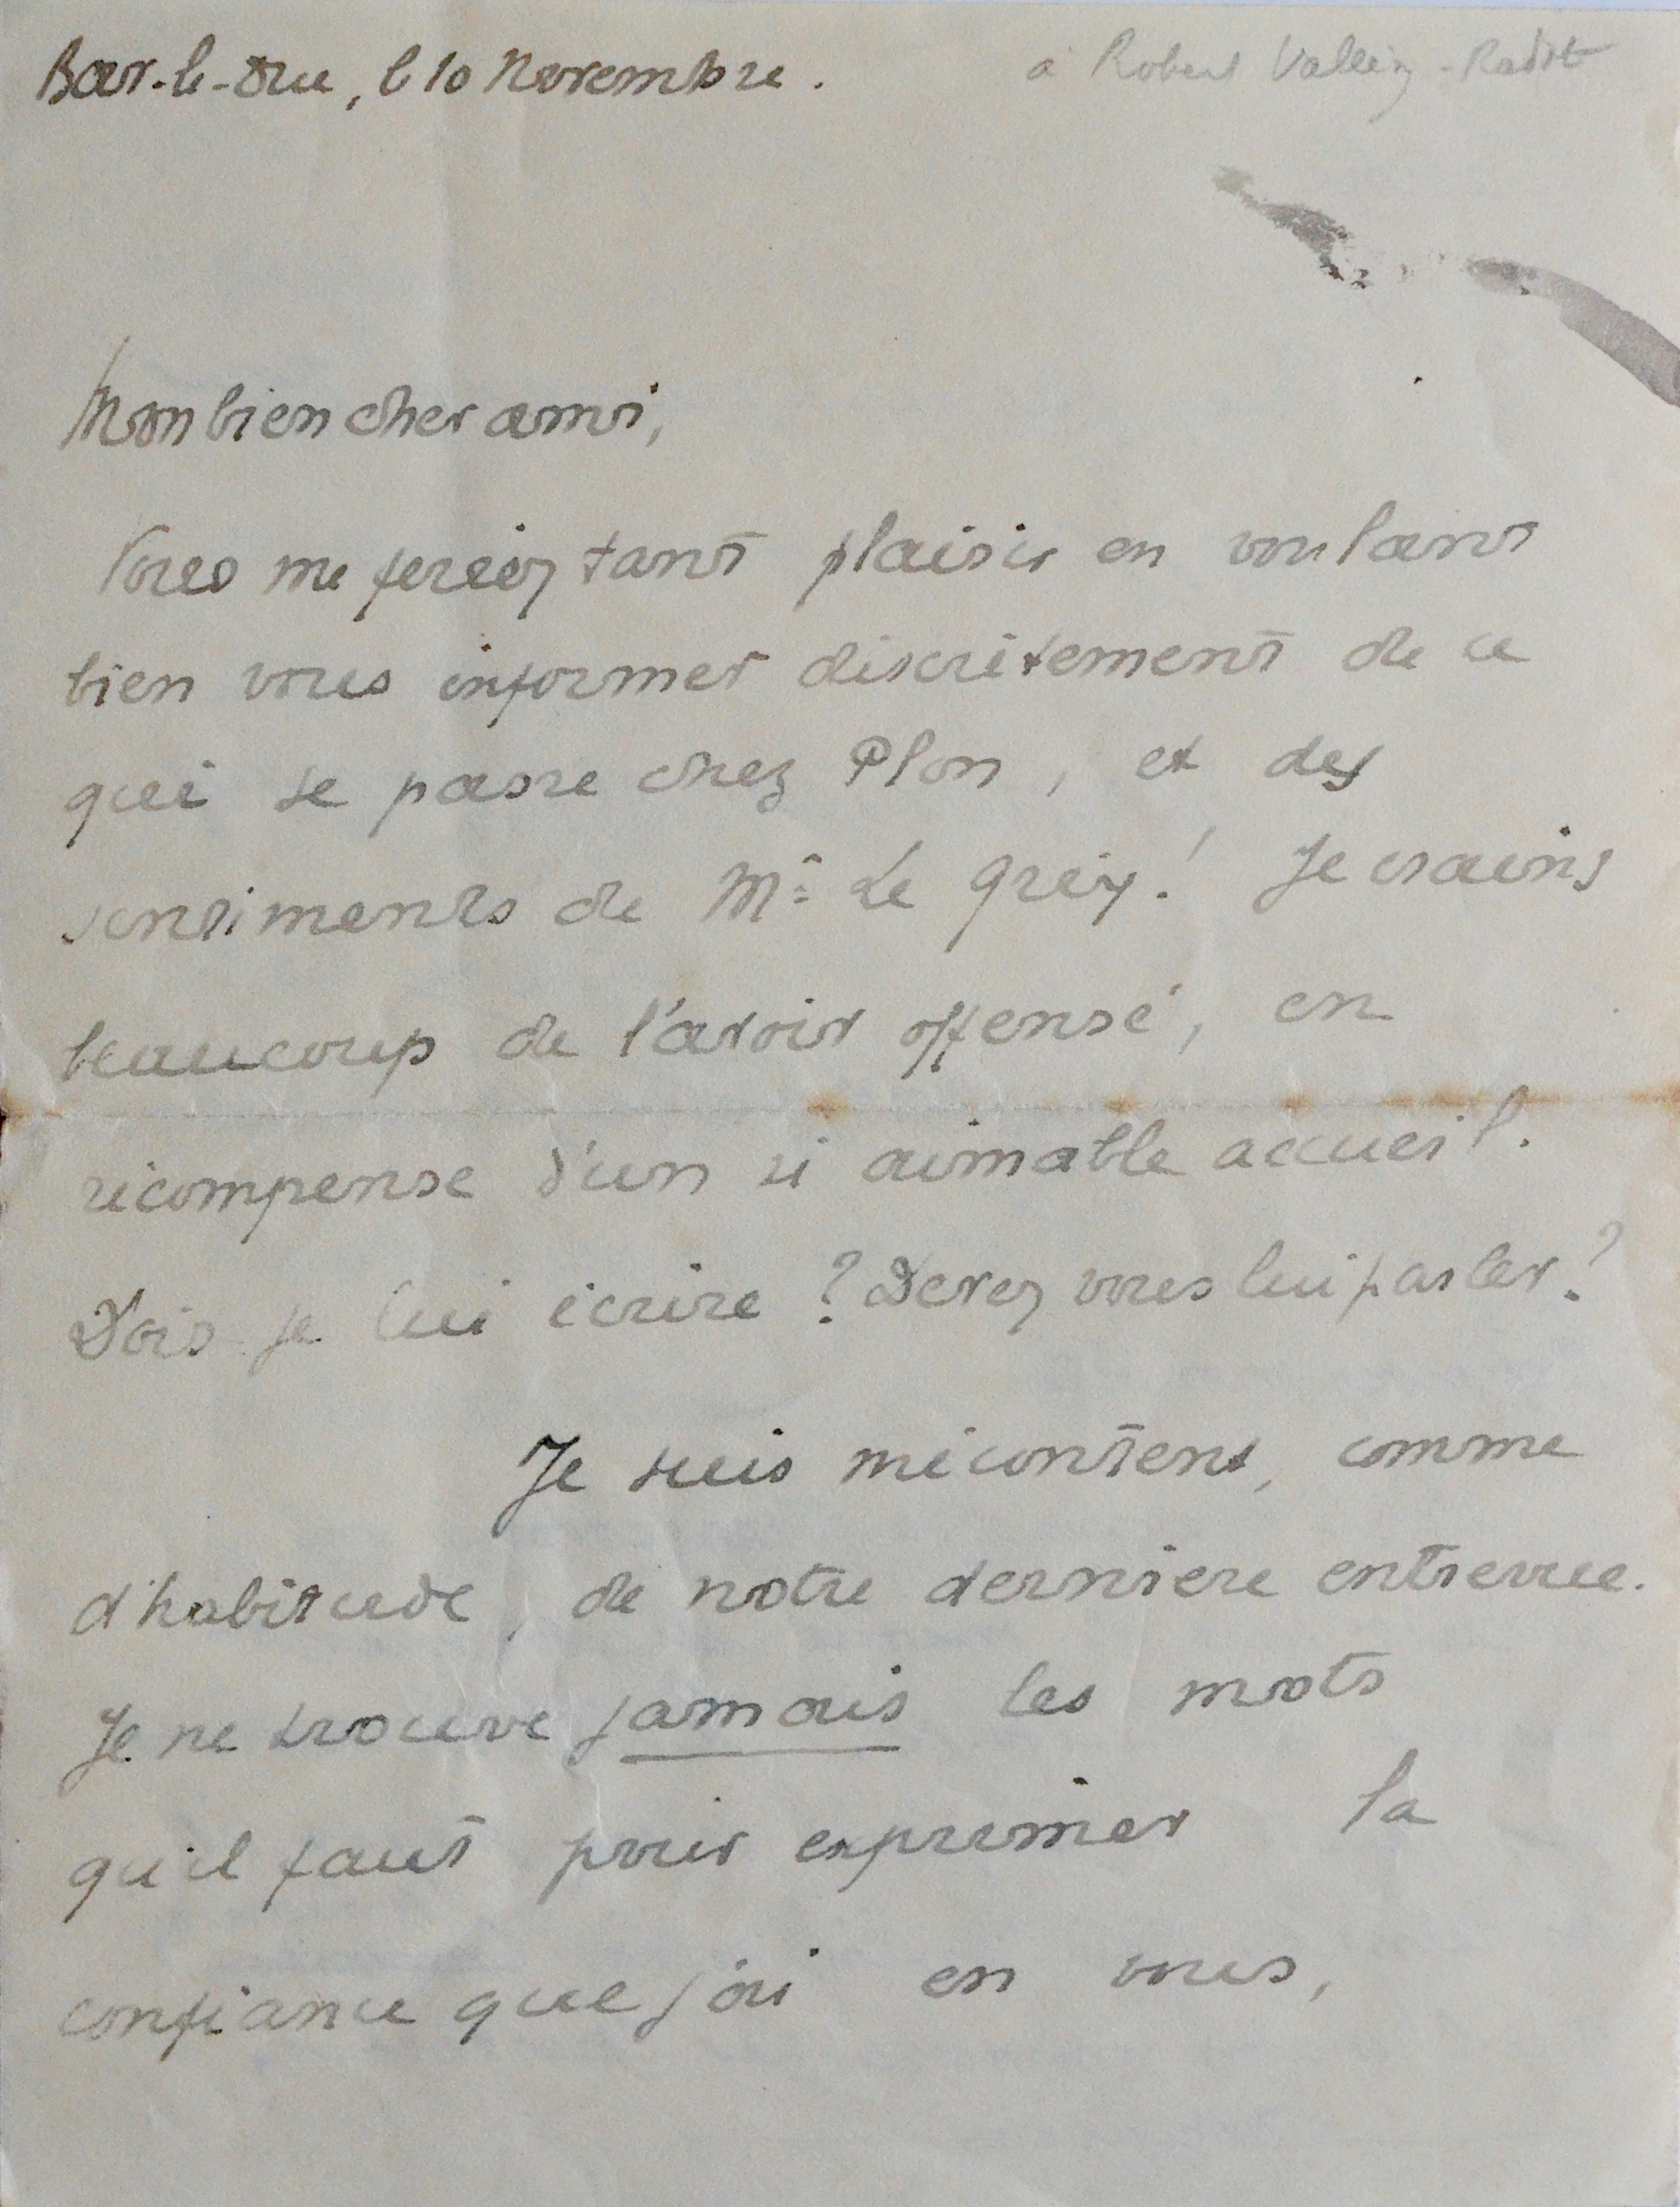 Bar-le-Duc, le 10 Novembre.
à Robert Vallery-Radot
Mon bien cher ami,
Vous me feriez tant plaisir en voulant
bien vous informer discrètement de ce
qui se passe chez Plon, et des
sentiments de Mr Le Grix! Je crains
beaucoup de l'avoir offensé, en
récompense d'un si aimable accueil.
Dois-je lui écrire? Devez vous lui parler?
Je suis mécontent, comme
d'habitude, de notre dernière entrevue.
Je ne trouve jamais les mots
qu'il faut pour exprimer la
confiance que j'ai en vous,